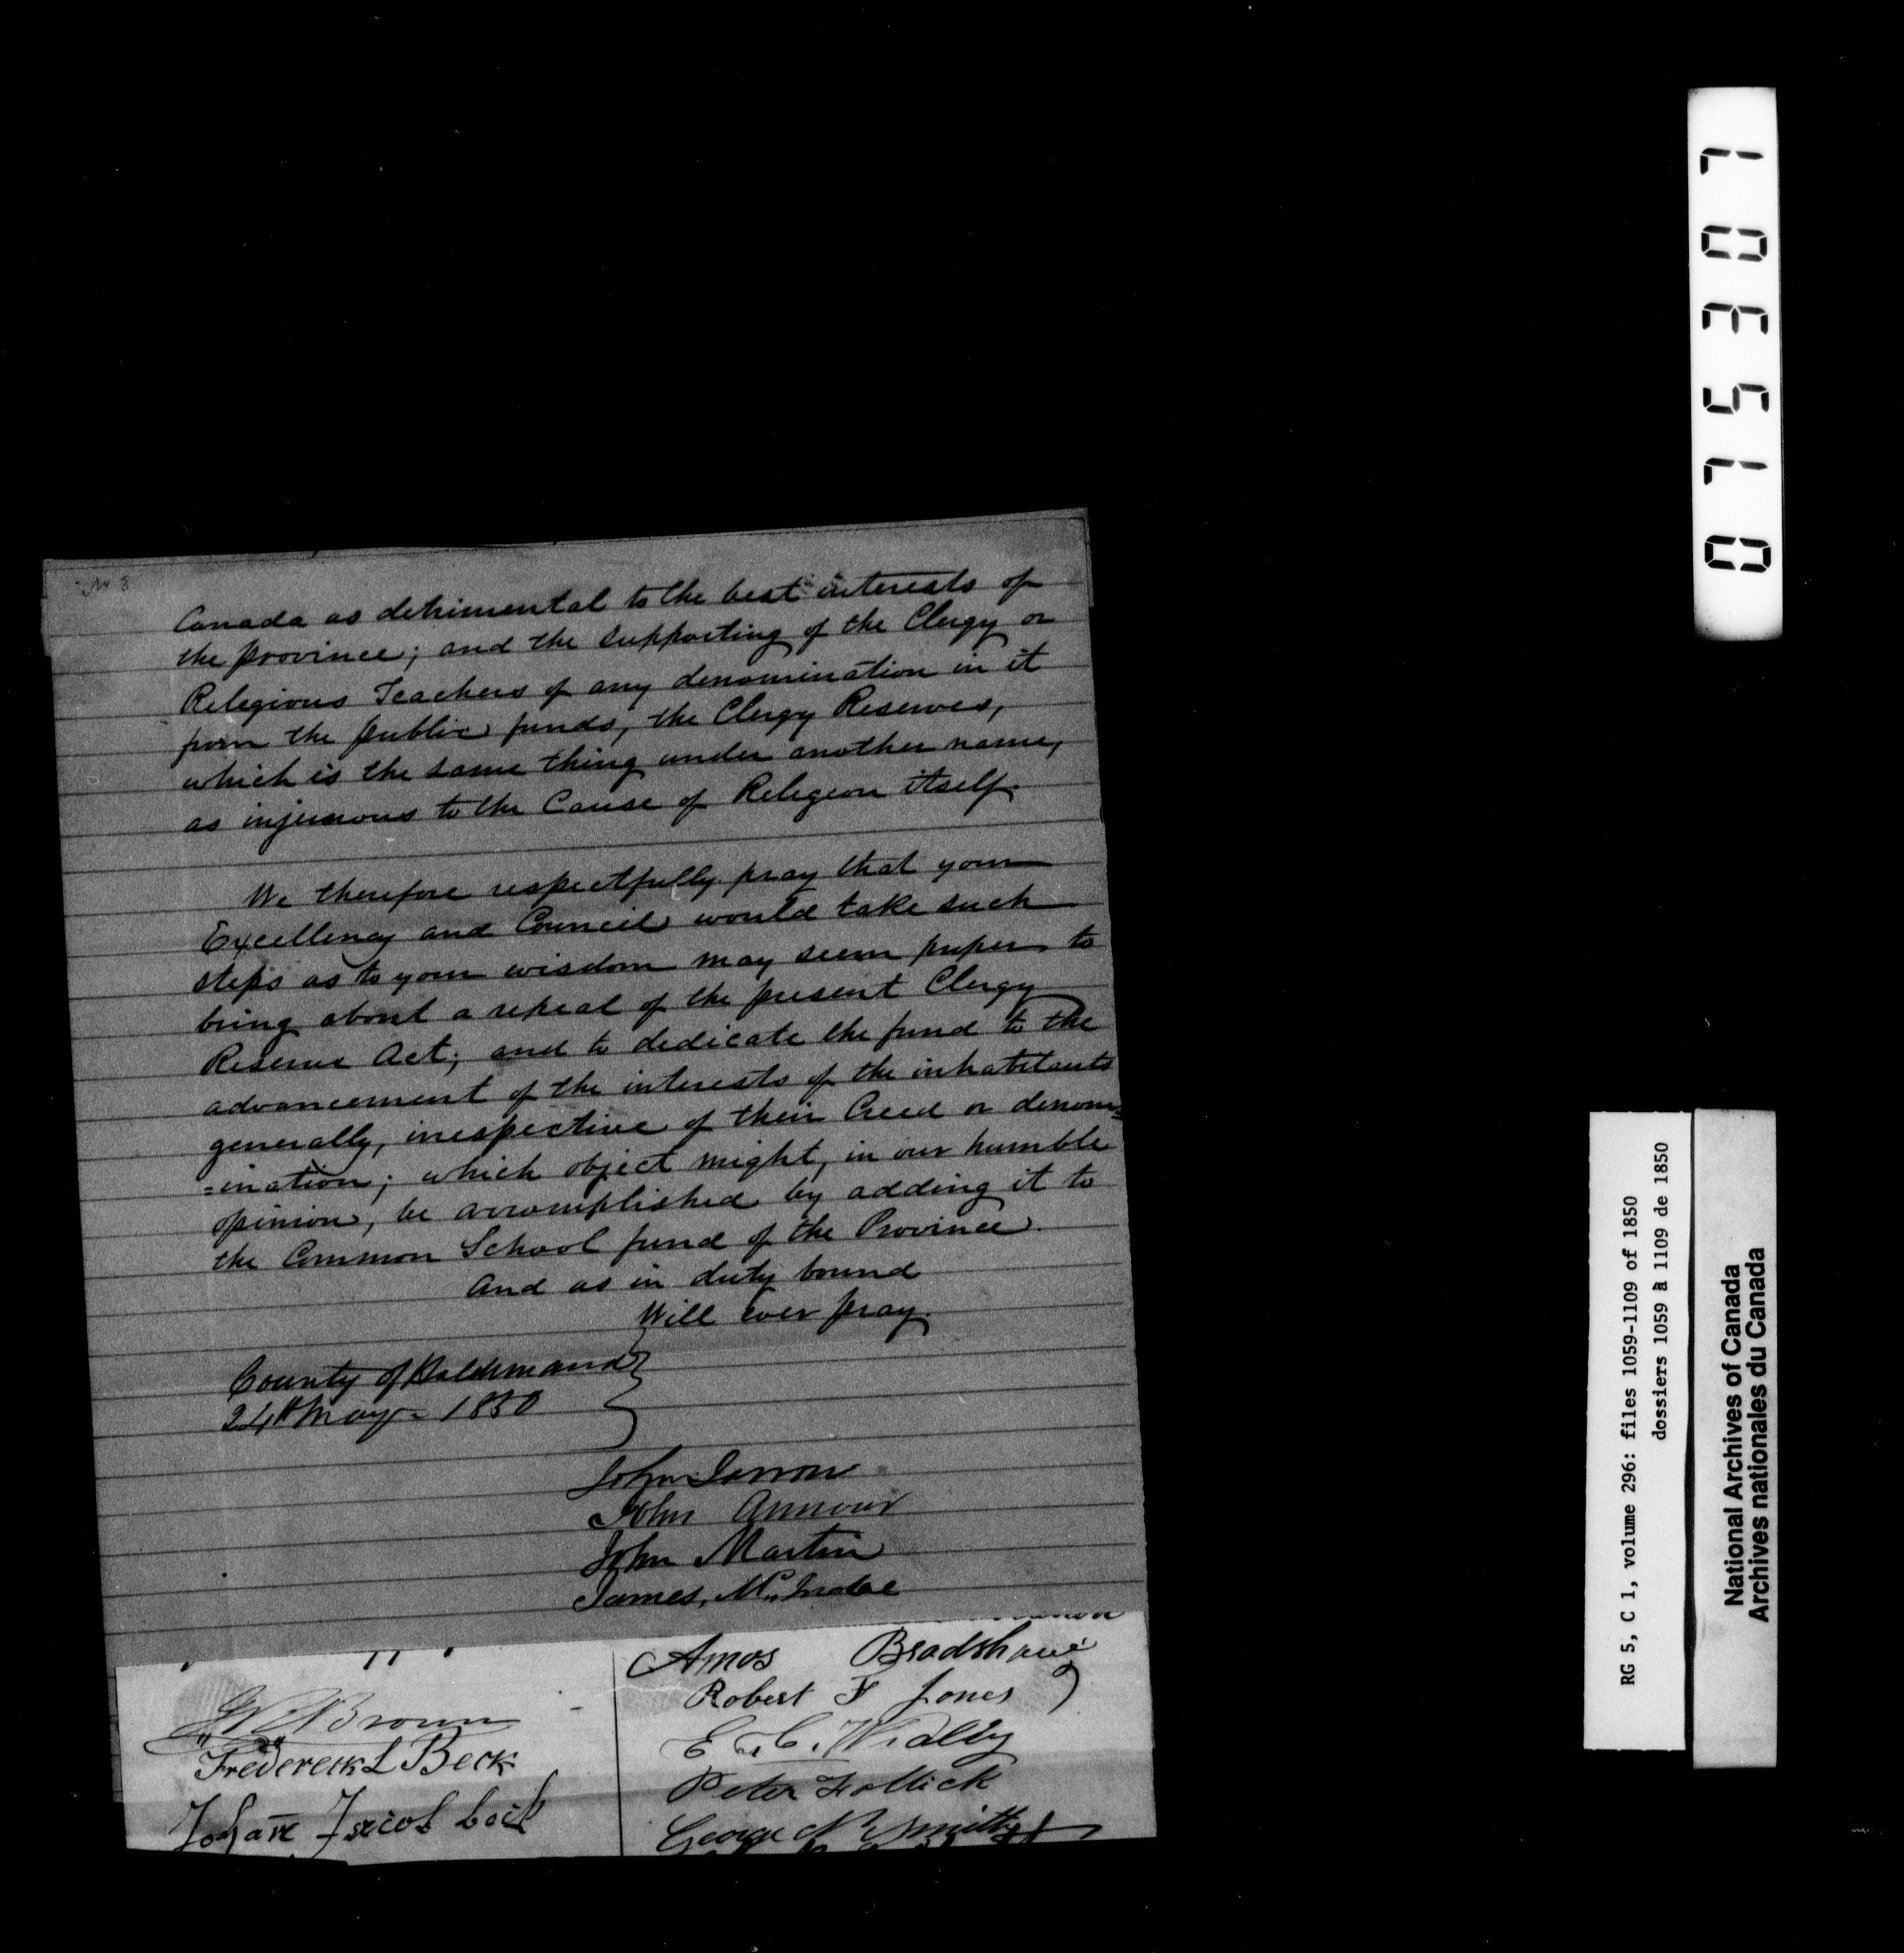 Canada as detrimental to the best interests of
the province; and the supporting of the Clergy or
Religious Teachers of any denomination in it
from the public funds, the Clergy Reserves,
which is the same thing under another name,
as injurious to the Cause of Religion itself.
We therefore respectfully pray that your
Excellency and Council would take such
steps as to your wisdom may seem proper to
bring about a repeal of the present Clergy
Reserve Act; and to dedicate the fund to the
advancement of the interests of the inhabitants
generally, irrespective of their Creed or denom=
=ination; which object might, in our humble
opinion, be accomplished by adding it to
the Common School fund of the Province.
And as in duty bound
Will ever pray.
County of Haldimand
24th May - 1850
John
John Armour
John Martin
James
Amos Bradshaw
Robert F Jones
E. C.
Peter
George Smith
Brown
Frederick L Beck
075307
RG 5, C 1, volume 296: files 1059-1109 of 1850
dossiers 1059 à 1109 de 1850
National Archives of Canada
Archives nationales du Canada